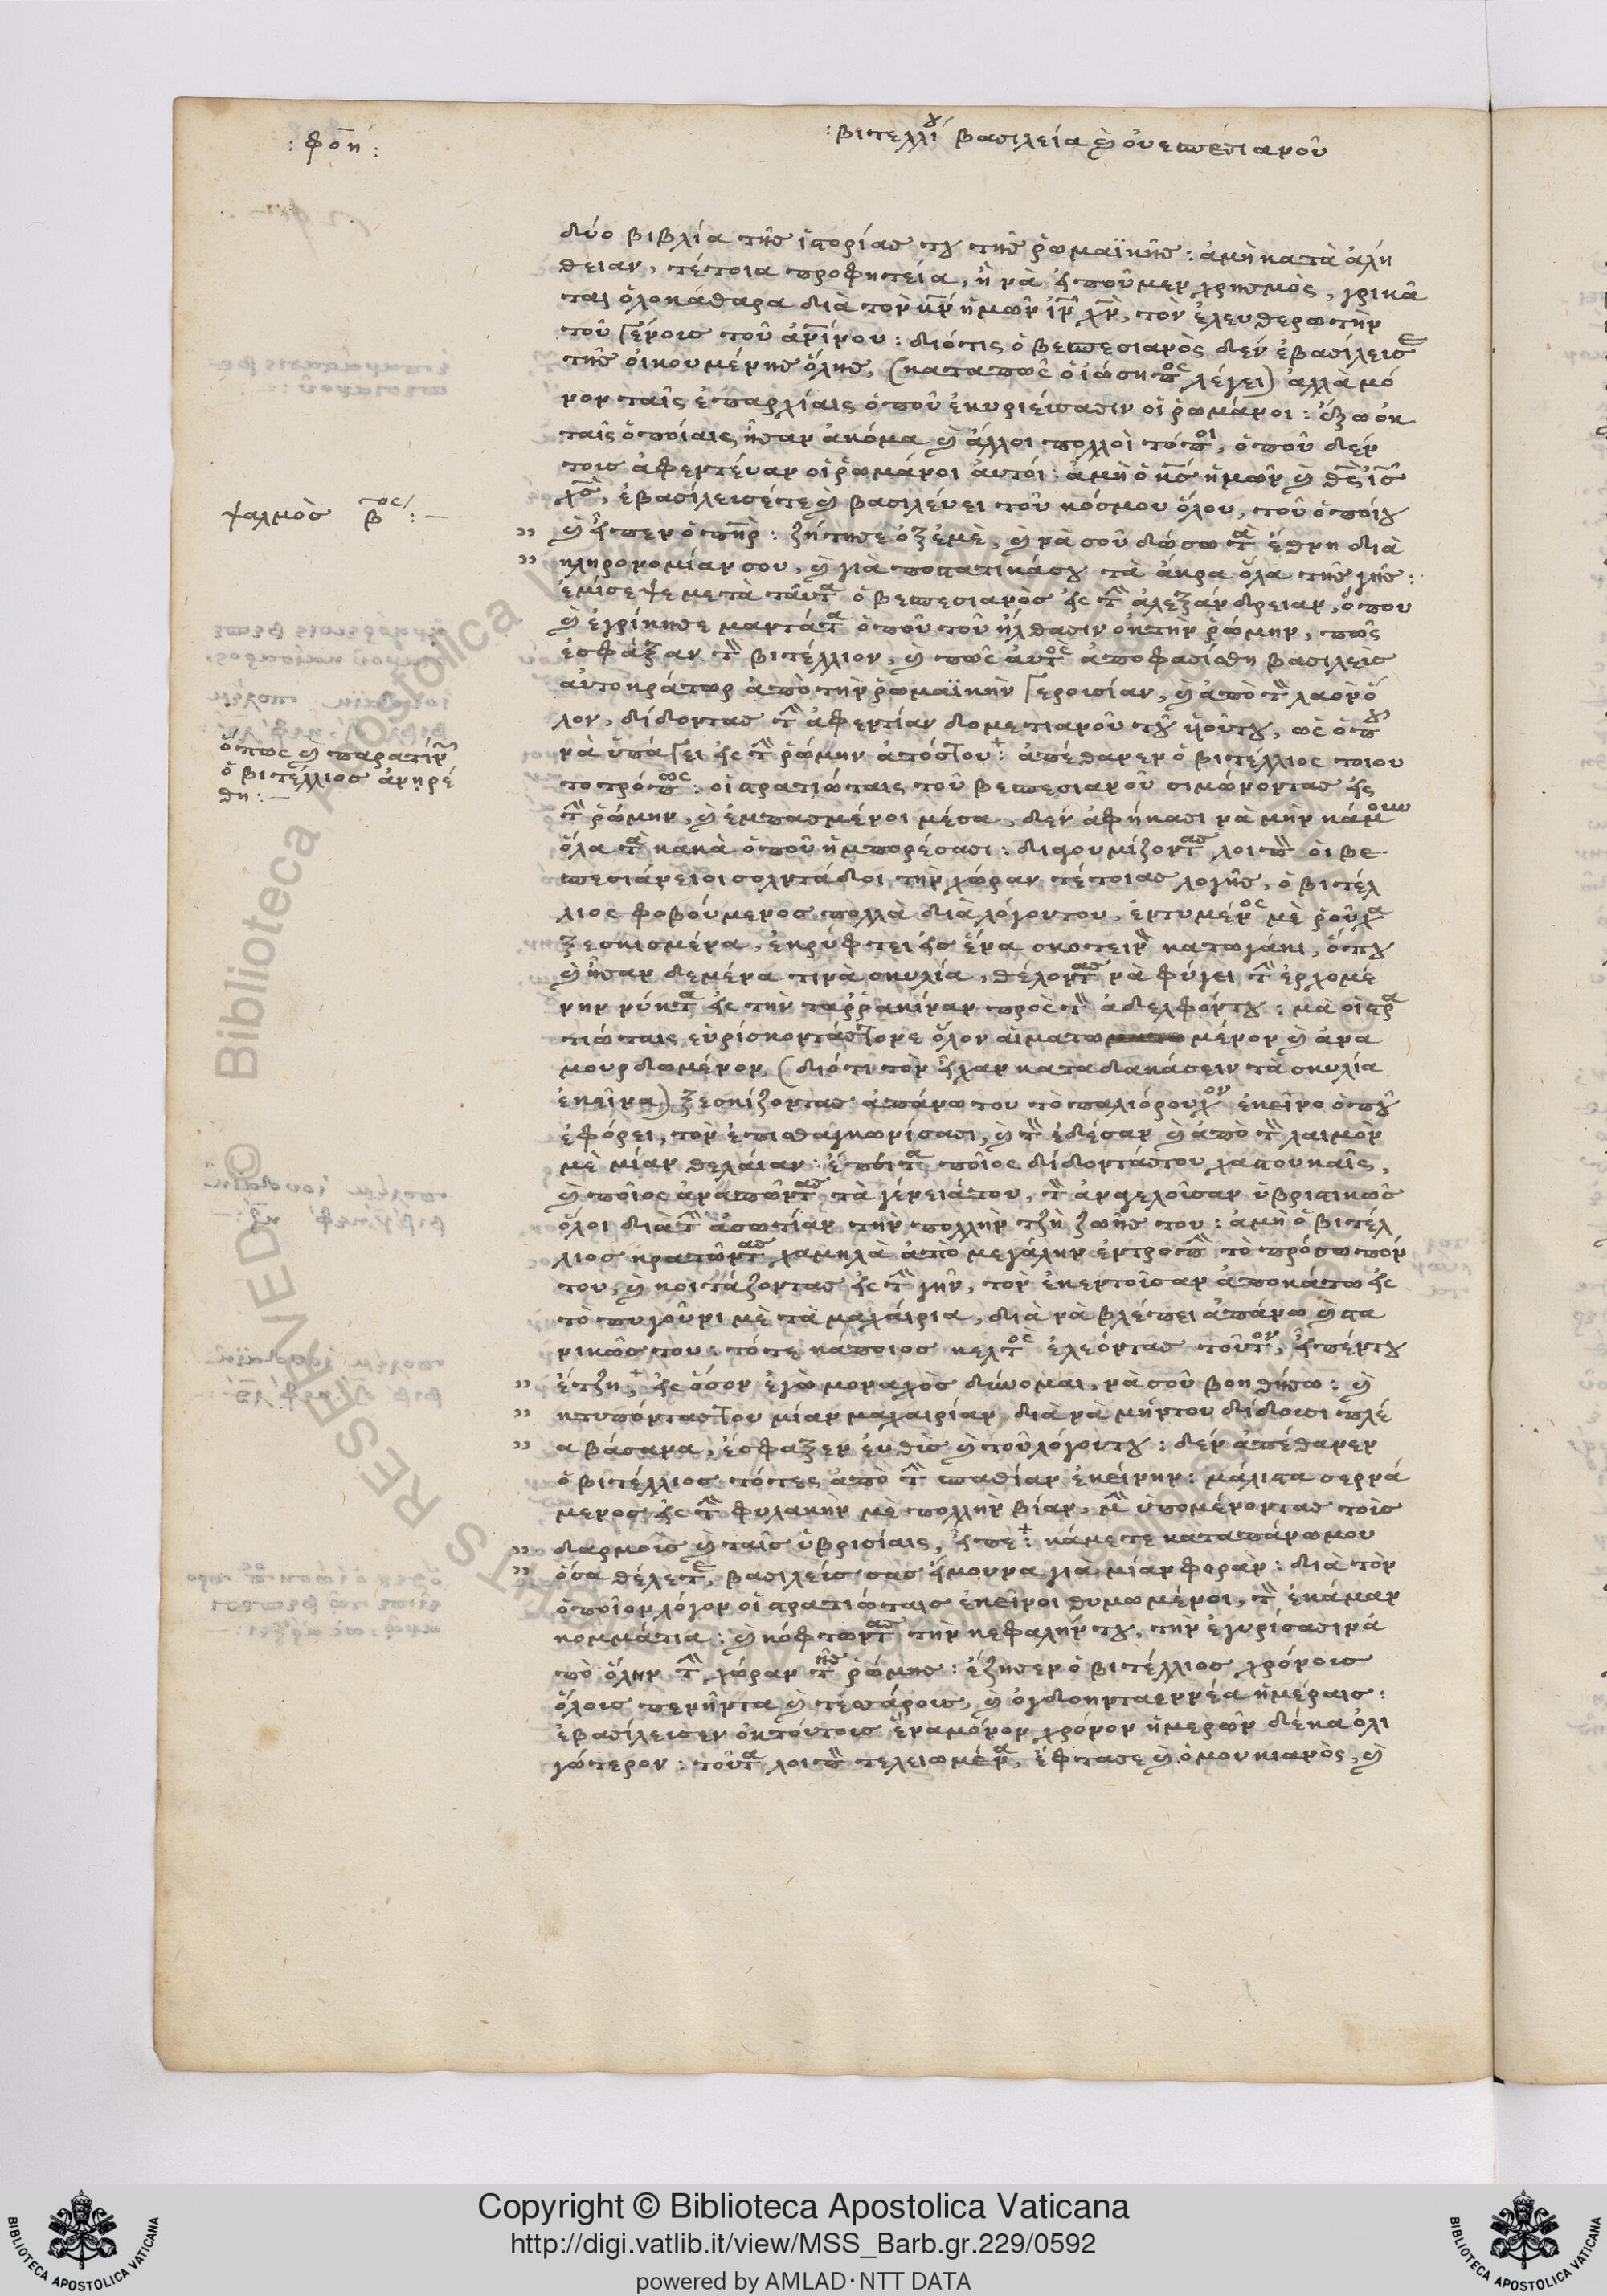 : φοη :
: βιτελλίου βασιλεία καὶ οὐεσπεσιανοῦ
δύο βιβλία τῆς ἱστορίας του τῆς ῥωμαϊκῆς : ἀμὴ κατὰ ἀλή
θειαν, τέτοια προφητεία, ἢ νὰ εἰποῦμεν χρησμὸς, γρικᾶ
ται ὁλοκάθαρα διὰ τὸν κν ἡμῶν ἰν χν, τὸν ἐλευθερωτὴν
τοῦ γένοις τοῦ ἀνίνου : διότις ὁ βεσπεσιανὸς δὲν ἐβασίλεισε
τῆς οἰκουμένης ὅλης, (καταπῶς ὁ ἰώσηπος λέγει) ἀλλὰ μό
νον ταῖς ἐπαρχίαις ὁποῦ ἐκυριεύσασιν οἱ ῥωμάνοι : ἔξω ὀκ
ταῖς ὁποίαις ἦσαν ἀκόμα καὶ ἄλλοι πολλοὶ τόποι, ὁποῦ δὲν
τοις ἀφεντέυαν οἱ ῥωμάνοι ἀυτοί : ἀμὴ ὁ κς ἡμῶν καὶ θς ἰς
χς, ἐβασίλεισέτε καὶ βασιλέυει τοῦ κόσμου ὅλου, τοῦ ὁποίου
ψαλμὸς βος : —
" καὶ εἶπεν ὁ πηρ : ζήτησε ὀξ ἐμὲ, καὶ νὰ σοῦ δώσω τὰ ἔθνη διὰ
" κληρονομίαν σου, καὶ γιὰ ποστατικάσου τὰ ἄκρα ὅλα τῆς γῆς :
ἐμίσεψε μετὰ ταῦτα ὁ βεσπεσιανὸς εἰς τὴν ἀλεξάνδρειαν, ὅπου
καὶ ἐγρίκησε μαντάτα ὁποῦ τοῦ ἤλθασιν ὀκ τὴν ῥώμην, πῶς
ἐσφάξαν τὸν βιτέλλιον, καὶ πῶς ἀυτὸς ἀποφασίσθη βασιλεὶς
αὐτοκράτωρ ἀπὸ τὴν ῥωμαϊκὴν γερουσίαν, καὶ ἀπὸ τὸν λαὸν ὅ
λον, δίδοντας τὴν ἀφεντίαν δομετιανοῦ τοῦ ὑοῦτου, ὡς ὁποῦ
νὰ ὑπάγει εἰς τὴν ῥώμην ἀπόστου : ἀπέθανεν ὁ βιτέλλιος τοιου
ὅπως καὶ παρατίνων
ὁ βιτέλλιος ἀνῃρέ
θη : —
τοτρόπως : οἱ στρατιώταις τοῦ βεσπεσιανοῦ σιμώνοντας εἰς
τὴν ῥώμην, καὶ ἐμπασμένοι μέσα, δὲν ἀφήκασι νὰ μὴν κάμουν
ὅλα τὰ κακὰ ὁποῦ ἠμπορέσασι : διαγουμίζοντας λοιπὸν οἱ βε
σπεσιάνειοι σολντάδοι τὴν χώραν τέτοιας λογῆς, ὁ βιτέλ
λιος φοβούμενος πολλὰ διὰ λόγοντου, ἐντυμένος μὲ ῥοῦχα
ξεσκισμένα, ἐκρύφτει εἰς ἕνα σκοτεινὸν κατωγάκι, ὅπου
καὶ ἦσαν δεμένα τινὰ σκυλία, θέλοντας νὰ φύγει τὴν ἐρχομέ
νην νύκτα εἰς τὴν ταῤῥακίναν πρὸς τὸν ἀδελφόντου : μὰ οἱ στρα
τιώταις εὑρίσκοντάς τονε ὅλον αἱματωμένον καὶ ἀνα
μουρδωμένον, (διότι τὸν εἶχαν καταδακάσειν τὰ σκυλία
ἐκεῖνα) ξεσκίζοντας ἀπάνω του τὸ παλιόρουχον ἐκεῖνο ὁποῦ
ἐφόρει, τὸν ἐπιθαγνωρίσασι, καὶ τὸν ἐδέσαν καὶ ἀπὸ τὸν λαιμὸν
μὲ μίαν θελάιαν : ἔπειτα ποῖος δίδοντάςτου χαστουκαῖς,
καὶ ποῖος ἀνασπῶντας τὰ γένειάτου, τὸν ἀναγελοῦσαν ὑβριστικῶς
ὅλοι διὰ τὴν ἀσωτίαν τὴν πολλὴν τζὴ ζωῆς του : ἀμὴ ὁ βιτέλ
λιος κρατῶντας χαμηλὰ ἀπὸ μεγάλην ἐντροπὴν τὸ πρόσωπόν
του, καὶ κοιτάζοντας εἰς τὴν γῆν, τὸν ἐκεντοῦσαν ἀποκάτω εἰς
τὸ πυγοῦνι μὲ τὰ μαχάιρια, διὰ νὰ βλέπει ἀπάνω καὶ στα
νικῶς του : τότε κάποιος κελτὸς ἐλεόντας τοῦτον, εἶπέντου
" ἔτζη, εἰς ὅσον ἐγὼ μοναχὸς δύνομαι, νὰ σοῦ βοηθήσω : καὶ
" κτυπόντας του μίαν μαχαιρίαν, διὰ νὰ μήντου δίδουσι πλέ
" α βάσανα, ἐσφαξεν ἐυθὺς καὶ τοῦ λόγουτου : δὲν ἀπέθανεν
ὁ βιτέλλιος τότες ἀπὸ τὴν σπαθίαν ἐκείνην : μάλιστα σερνά
μενος εἰς τὴν φυλακὴν μὲ πολλὴν βίαν, μὴν ὑπομένοντας τοὶς
" δαρμοὶς καὶ ταῖς ὑβρισίαις, εἶπε : κάμετε καταπάνωμου
" ὅσα θέλετε, βασιλεὺς σας ἤμουνα γιὰ μίαν φορὰν : διὰ τὸν
ὁποῖον λόγον οἱ στρατιώταις ἐκεῖνοι θυμωμένοι, τὸν ἐκάμαν
κομμάτια : καὶ κόφτωντας τὴν κεφαλήντου, τὴν ἐγυρίσασι νά
πὸ ὅλην τὴν χώραν τῆς ῥώμης : ἔζησεν ὁ βιτέλλιος χρόνοις
ὅλοις πενῆντα καὶ τεσσάροις, καὶ ὀγδοηνταεννέα ἡμέραις :
ἐβασίλεισεν ὀκ τούτοις ἕνα μόνον χρόνον ἡμερῶν δέκα ὀλι
γώτερον : τοῦτα λοιπὸν τελειωμένα, ἔφτασε καὶ ὁ μουκιανὸς, καὶ
Copyright © Biblioteca Apostolica Vaticana
http://digi.vatlib.it/view/MSS_Barb.gr.229/0592
powered by AMLAD·NTT DATA